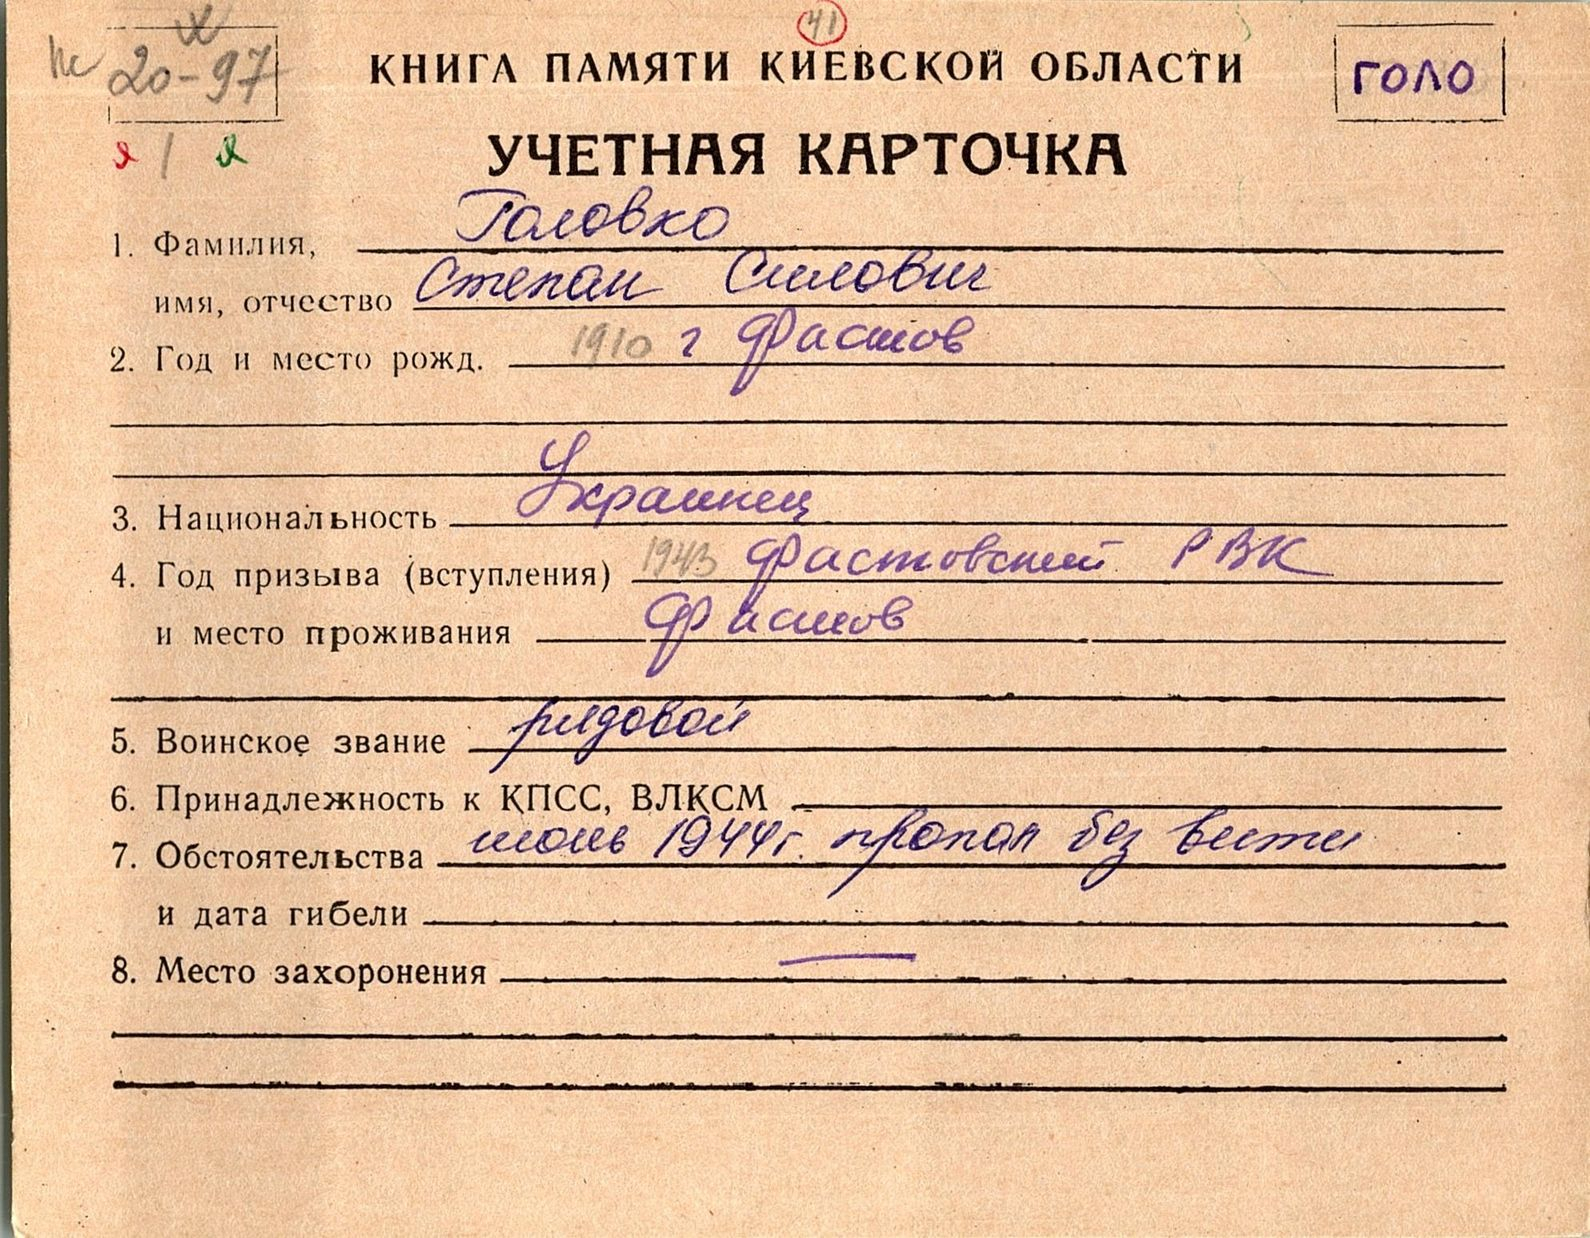 41
20-97
КНИГА ПАМЯТИ КИЕВСКОЙ ОБЛАСТИ
ГОЛО
УЧЕТНАЯ КАРТОЧКА
1. Фамилия, Головко
имя, отчество Степан Силович
2. Год и место рожд. 1910 г Фастов
3. Национальность Украинец
4. Год призыва (вступления) 1943 Фастовский РВК
и место проживания Фастов
5. Воинское звание рядовой
6. Принадлежность к КПСС, ВЛКСМ
7. Обстоятельства 1944г. пропал без вести
и дата гибели
8. Место захоронения —